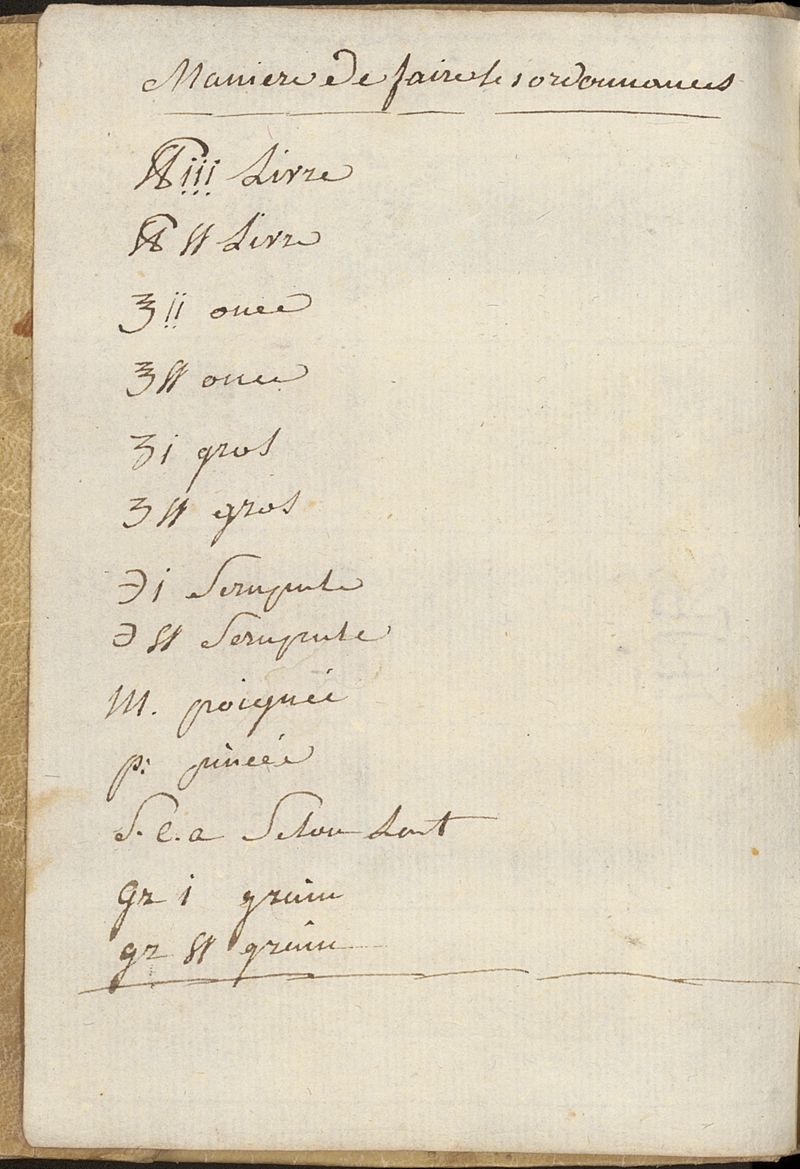 Maniere De faire les ordonnances
℔ iii Livre
℔ ß Livre
℥ ii once
℥ ß once
ʒ i gros
ʒ ß gros
℈ i Scrupule
℈ ß Scrupule
M. poignée
p: pincée
S. l. a Selon Lart
gr i grain
gr ß grain